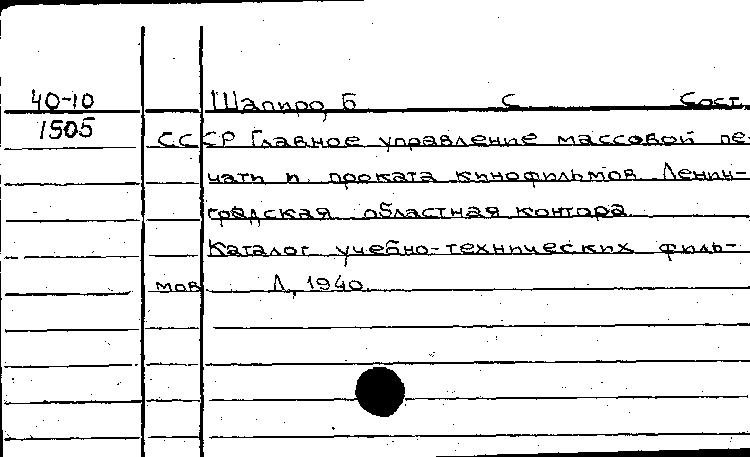 40-10 Шапиро, Б С Сост.
1505 СССР Главное управление массовой пе-
чати и проката кинофильмов Ленин-
градская областная контора
Каталог учебно-технических филь-
мов Л, 1940.